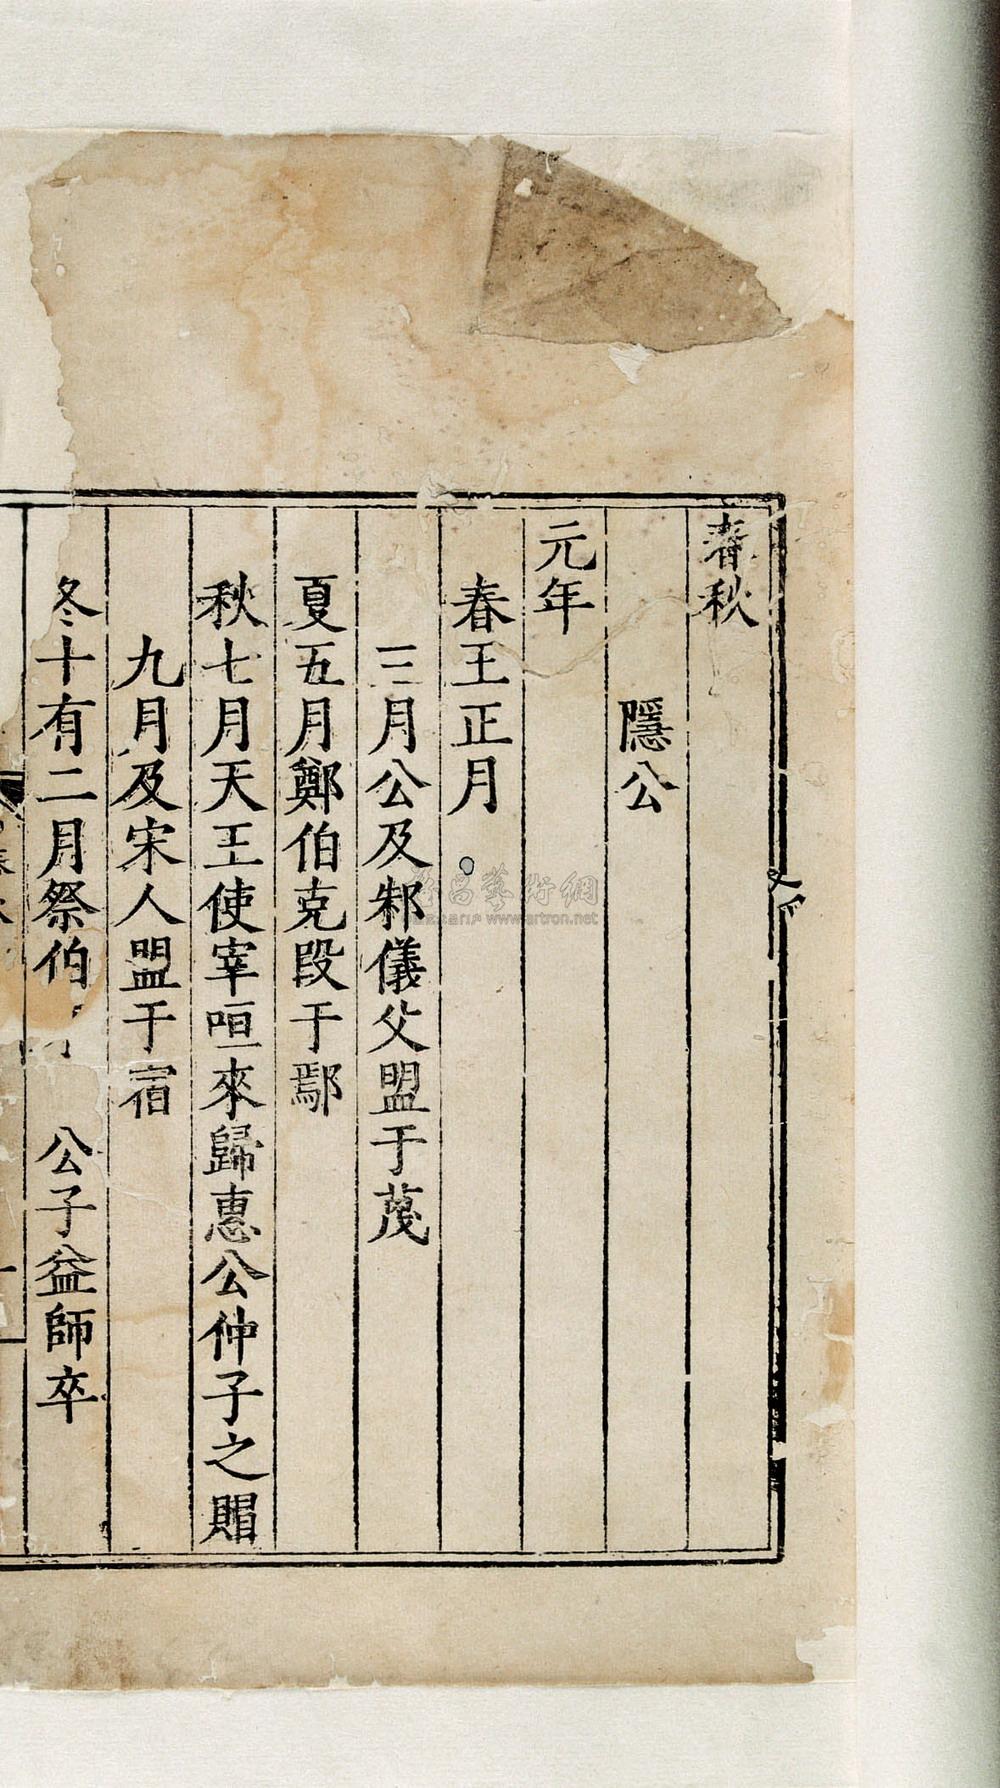 春秋
隱公
元年
春王正月
三月公及邾儀父盟于蔑
夏五月鄭伯克段于鄢
秋七月天王使宰咺來歸惠公仲子之賵
九月及宋人盟于宿
冬十有二月祭伯 公子益師卒
www.artron.net